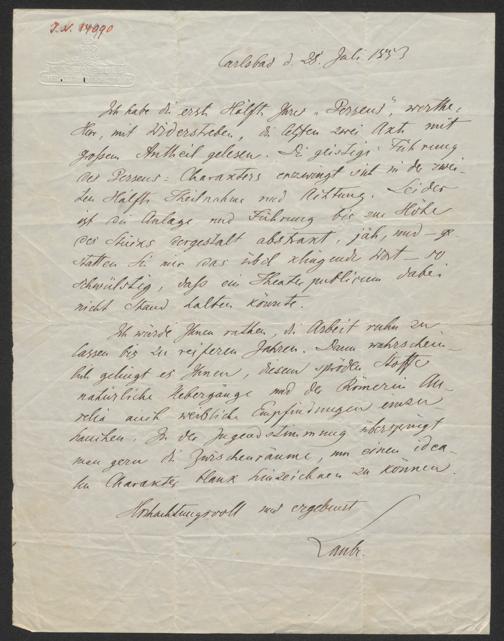 I. N. 14990
Carlsbad d. 28. Juli 1883
Ich habe die erste Hälfte Ihres „Perseus“, werther
Herr, mit Widerstreben, die letzten zwei Akte mit
großem Antheil gelesen. Die geistige Führung
des Perseus-Charakters erzwingt sich in der zwei-
ten Hälfte Theilnahme und Achtung. Leider
ist die Anlage und Führung bis zur Höhe
des Stücks dergestalt abstrakt, jäh, und – ge-
statten Sie mir das übel klingende Wort – so
schwülstig, daß ein Theaterpublicum dabei
nicht Stand halten könnte.
Ich würde Ihnen rathen, die Arbeit ruhn zu
lassen bis zu reiferen Jahren. Dann wahrschein-
lich gelingt es Ihnen, diesem spröden Stoffe
natürliche Uebergänge und der Römerin Au-
relia auch weibliche Empfindungen einzu-
hauchen. In der Jugendstimmung überspringt
man gern die Zwischenräume, um einen idea-
len Charakter blank hinzeichnen zu können.
Hochachtungsvoll und ergebenst
Laube.